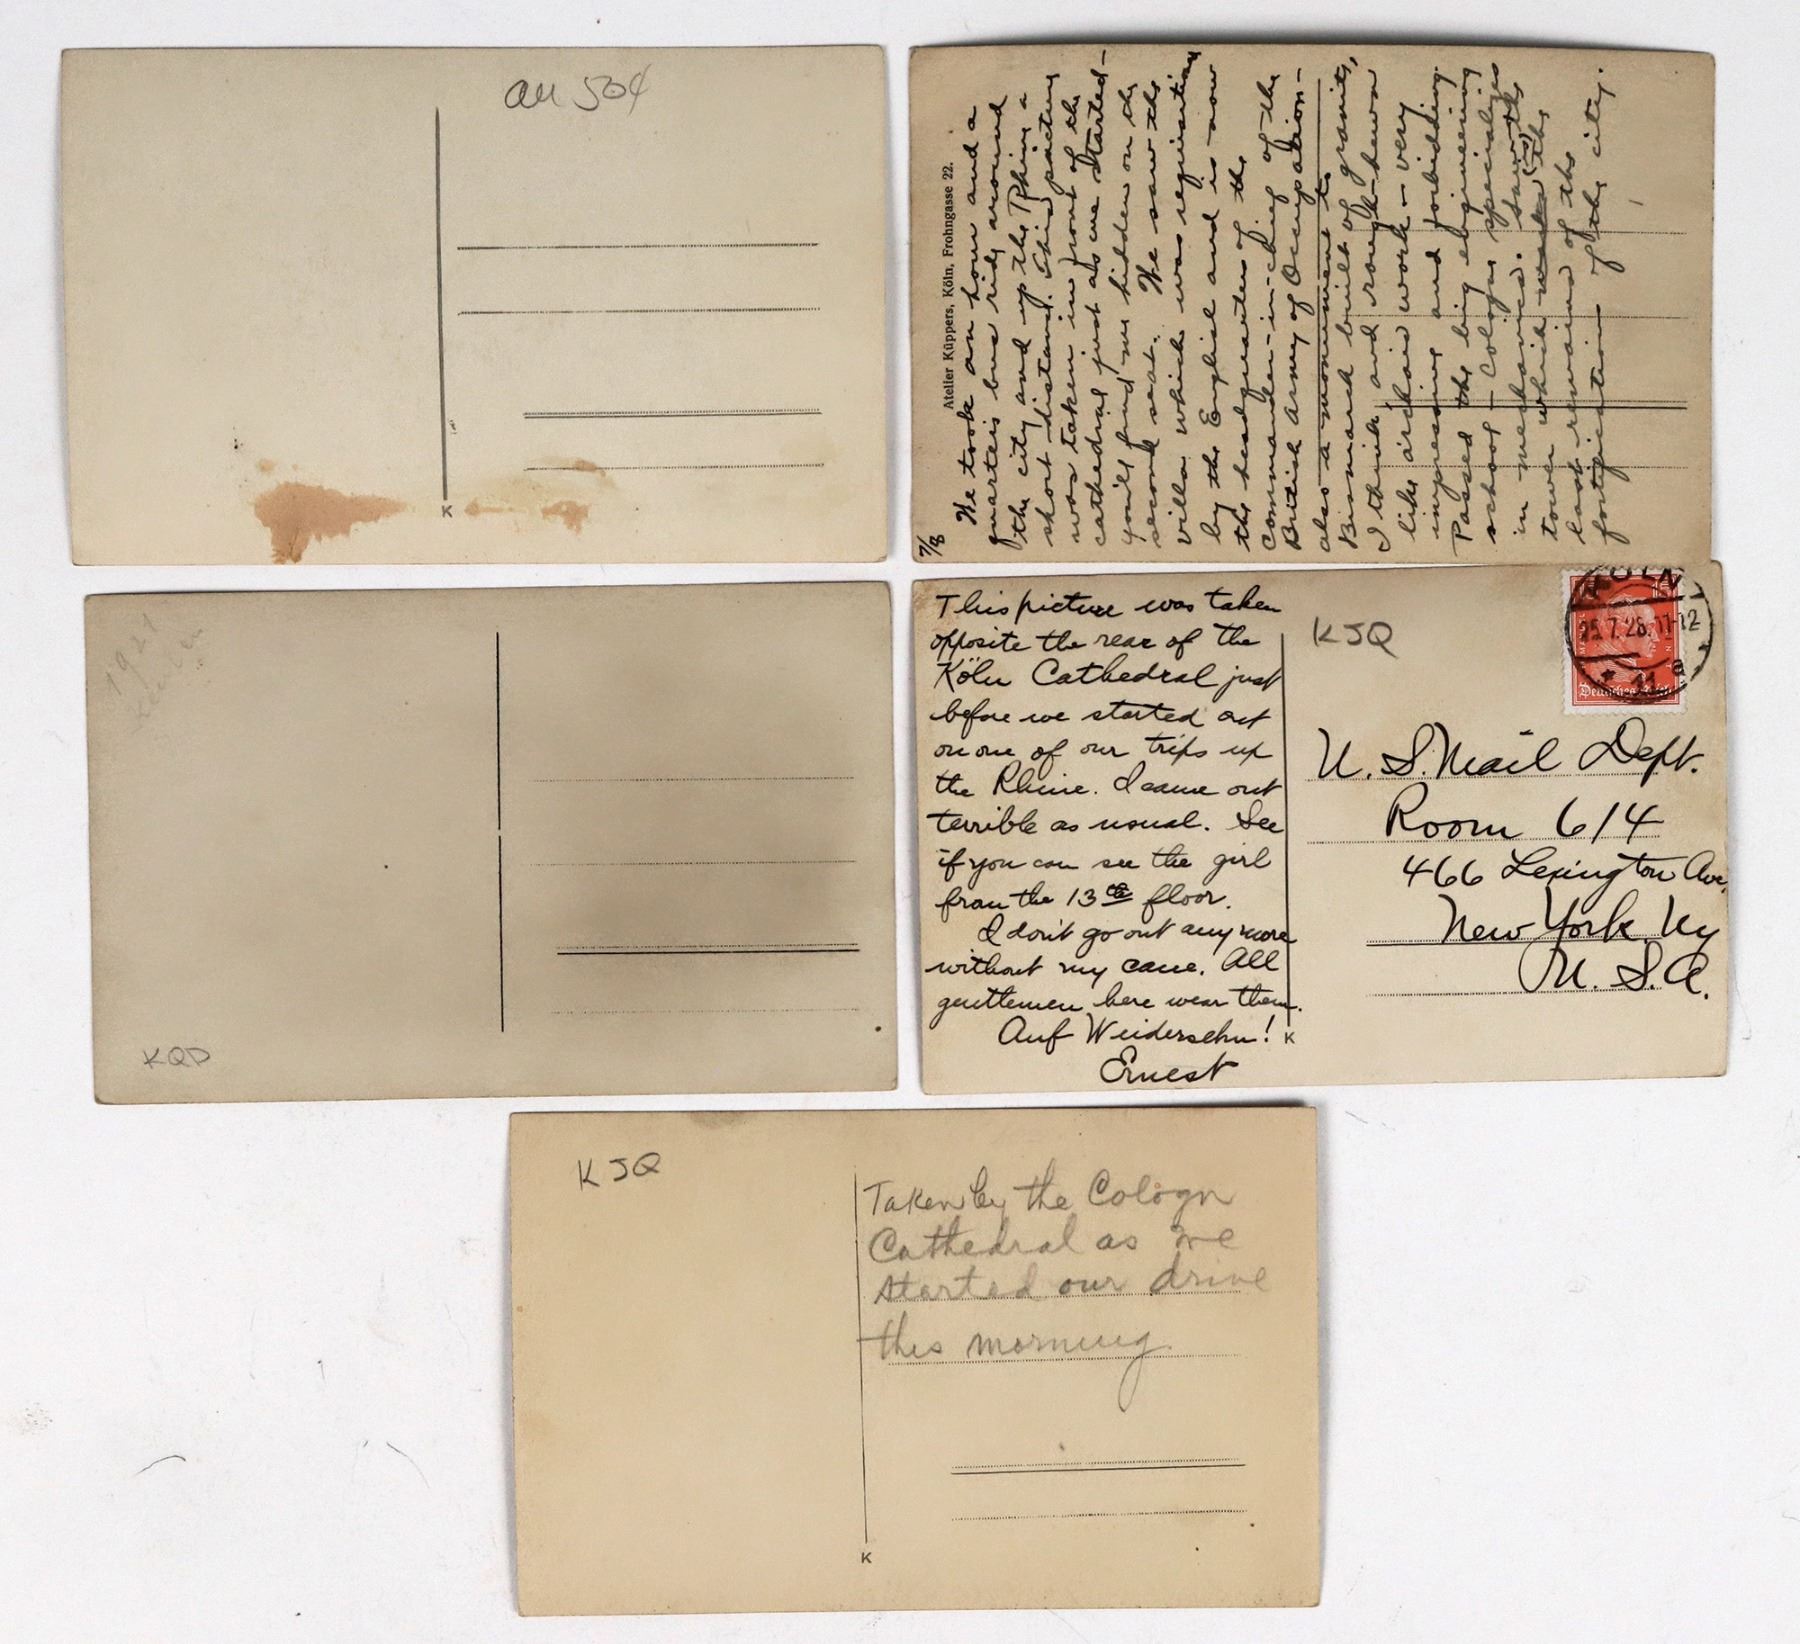 all 504
K
Atelier Küppers, Köln, Frohngasse 22.
7/8
We took an hour and a
quarters bus ride around
the city and up the Rhine a
short distance. This picture
was taken in front of the
cathedral just as we started–
you'll find me hidden on the
second seat. We saw the
villa which was requisitioned
by the English and is now
the headquarters of the
Commander-in-chief of the
British Army of Occupation–
also a monument to
Bismarck built of granite,
I think and rough-hewn
like archaic work – very
impressive and forbidding.
Passed the big engineering
school – Cologne specializes
in mechanics. Saw the
tower which marks (is) the
last remains of the
fortifications of the city.
1921
KQD
This picture was taken
opposite the rear of the
Köln Cathedral just
before we started out
on one of our trips up
the Rhine. I came out
terrible as usual. See
if you can see the girl
from the 13th floor.
I don't go out any more
without my cane. All
gentlemen here wear them.
Auf Weidersehn!
Ernest
K
KJQ
KÖLN
25.7.28.11-12
* 11 a
Deutsches Reich
U. S. Mail Dept.
Room 614
466 Lexington Ave.
New York Ny
U. S. A.
KJQ
Taken by the Cologn
Cathedral as we
started our drive
this morning.
K